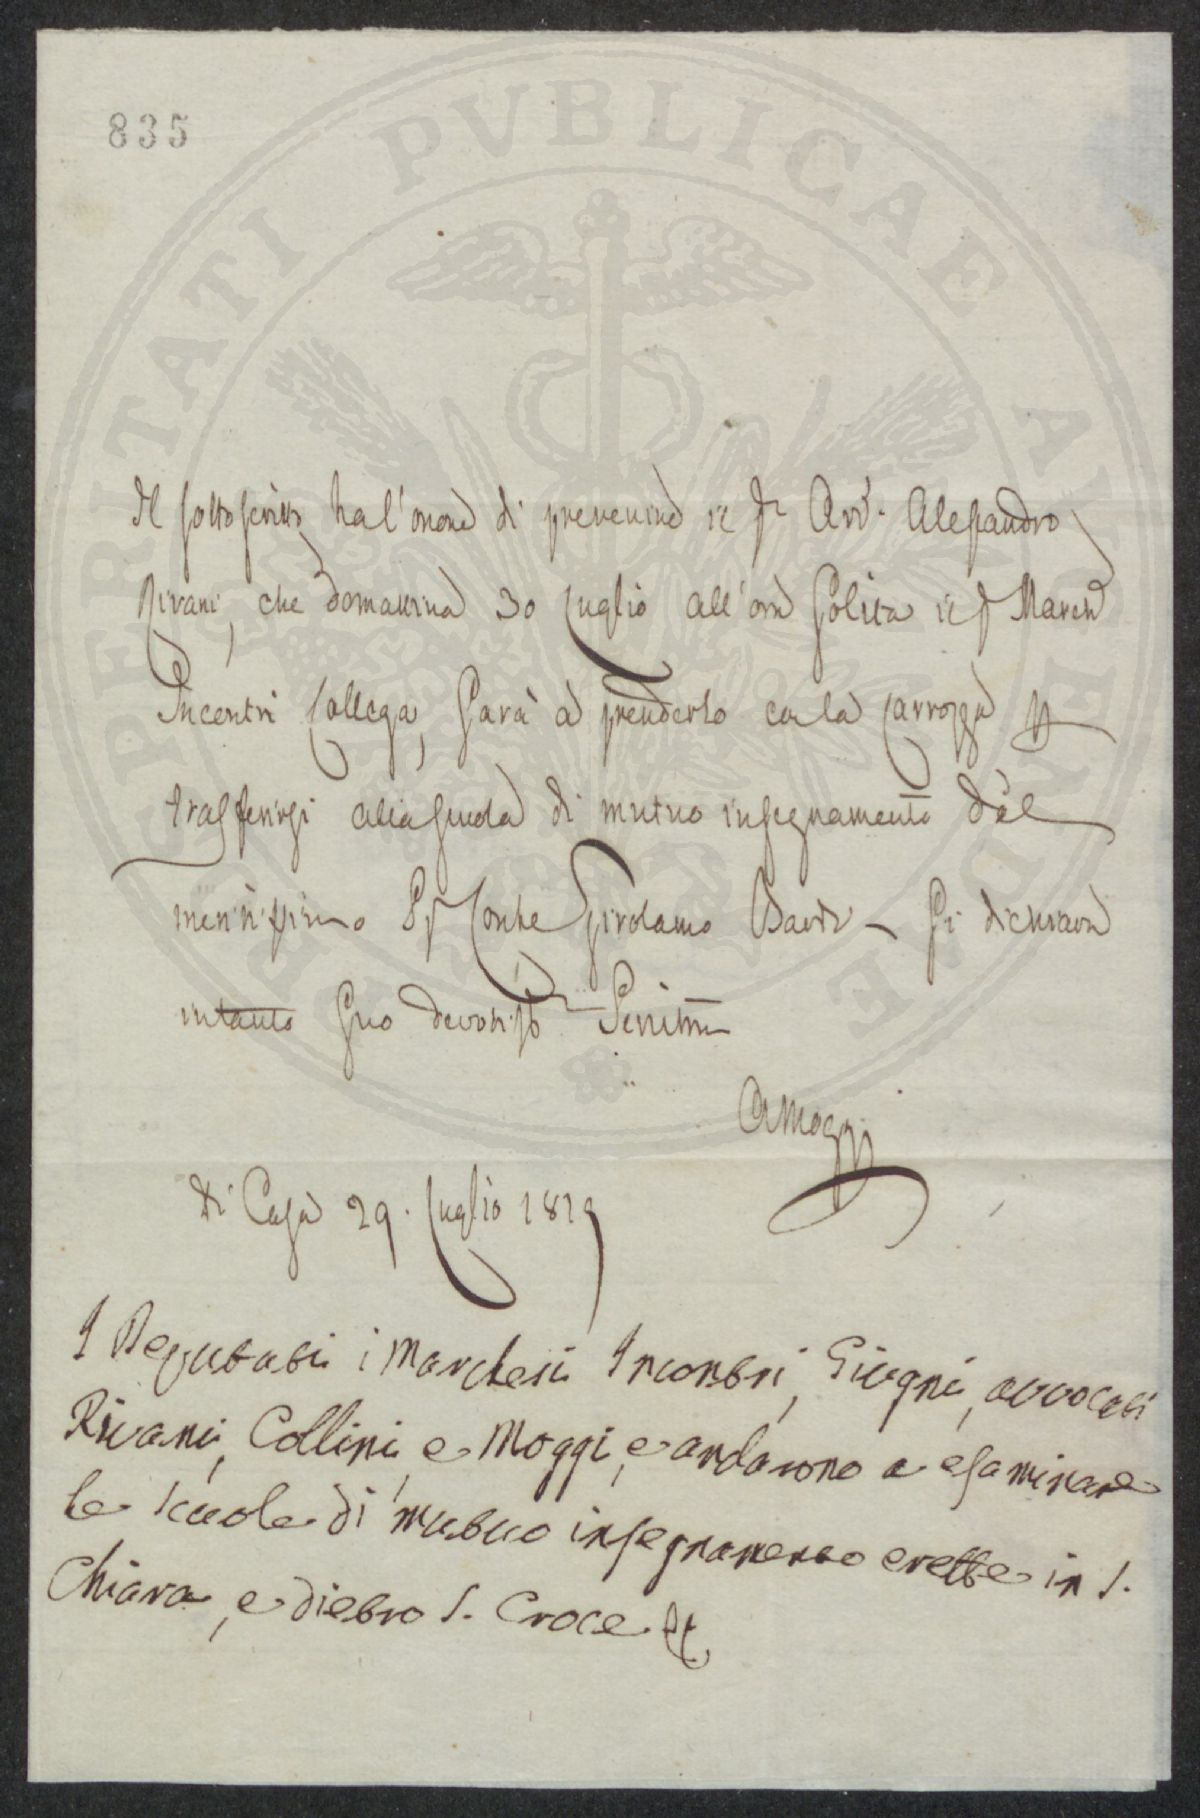 835
PROSPERITATI PVBLICAE AVGENDAE
Il sottoscritto ha l'onore di prevenire il Sr Avv. Alessandro
Rivani, che domattina 30 Luglio all'ora solita il Sr March
Incontri Collega, sarà à prenderlo co la carrozza
trasferirsi alla scuola di mutuo insegnamento del
meritissimo Sr Conte Girolamo Bardi Si dichiara
intanto suo devotiss
Moggi
di Casa 29. Luglio 1819
I Deputati i Marchesi Incontri, Giugni, avvocati
Rivani, Collini e Moggi, e andarono a esaminare
le scuole di mutuo insegnamento erette in S.
Chiara, e dietro S. Croce